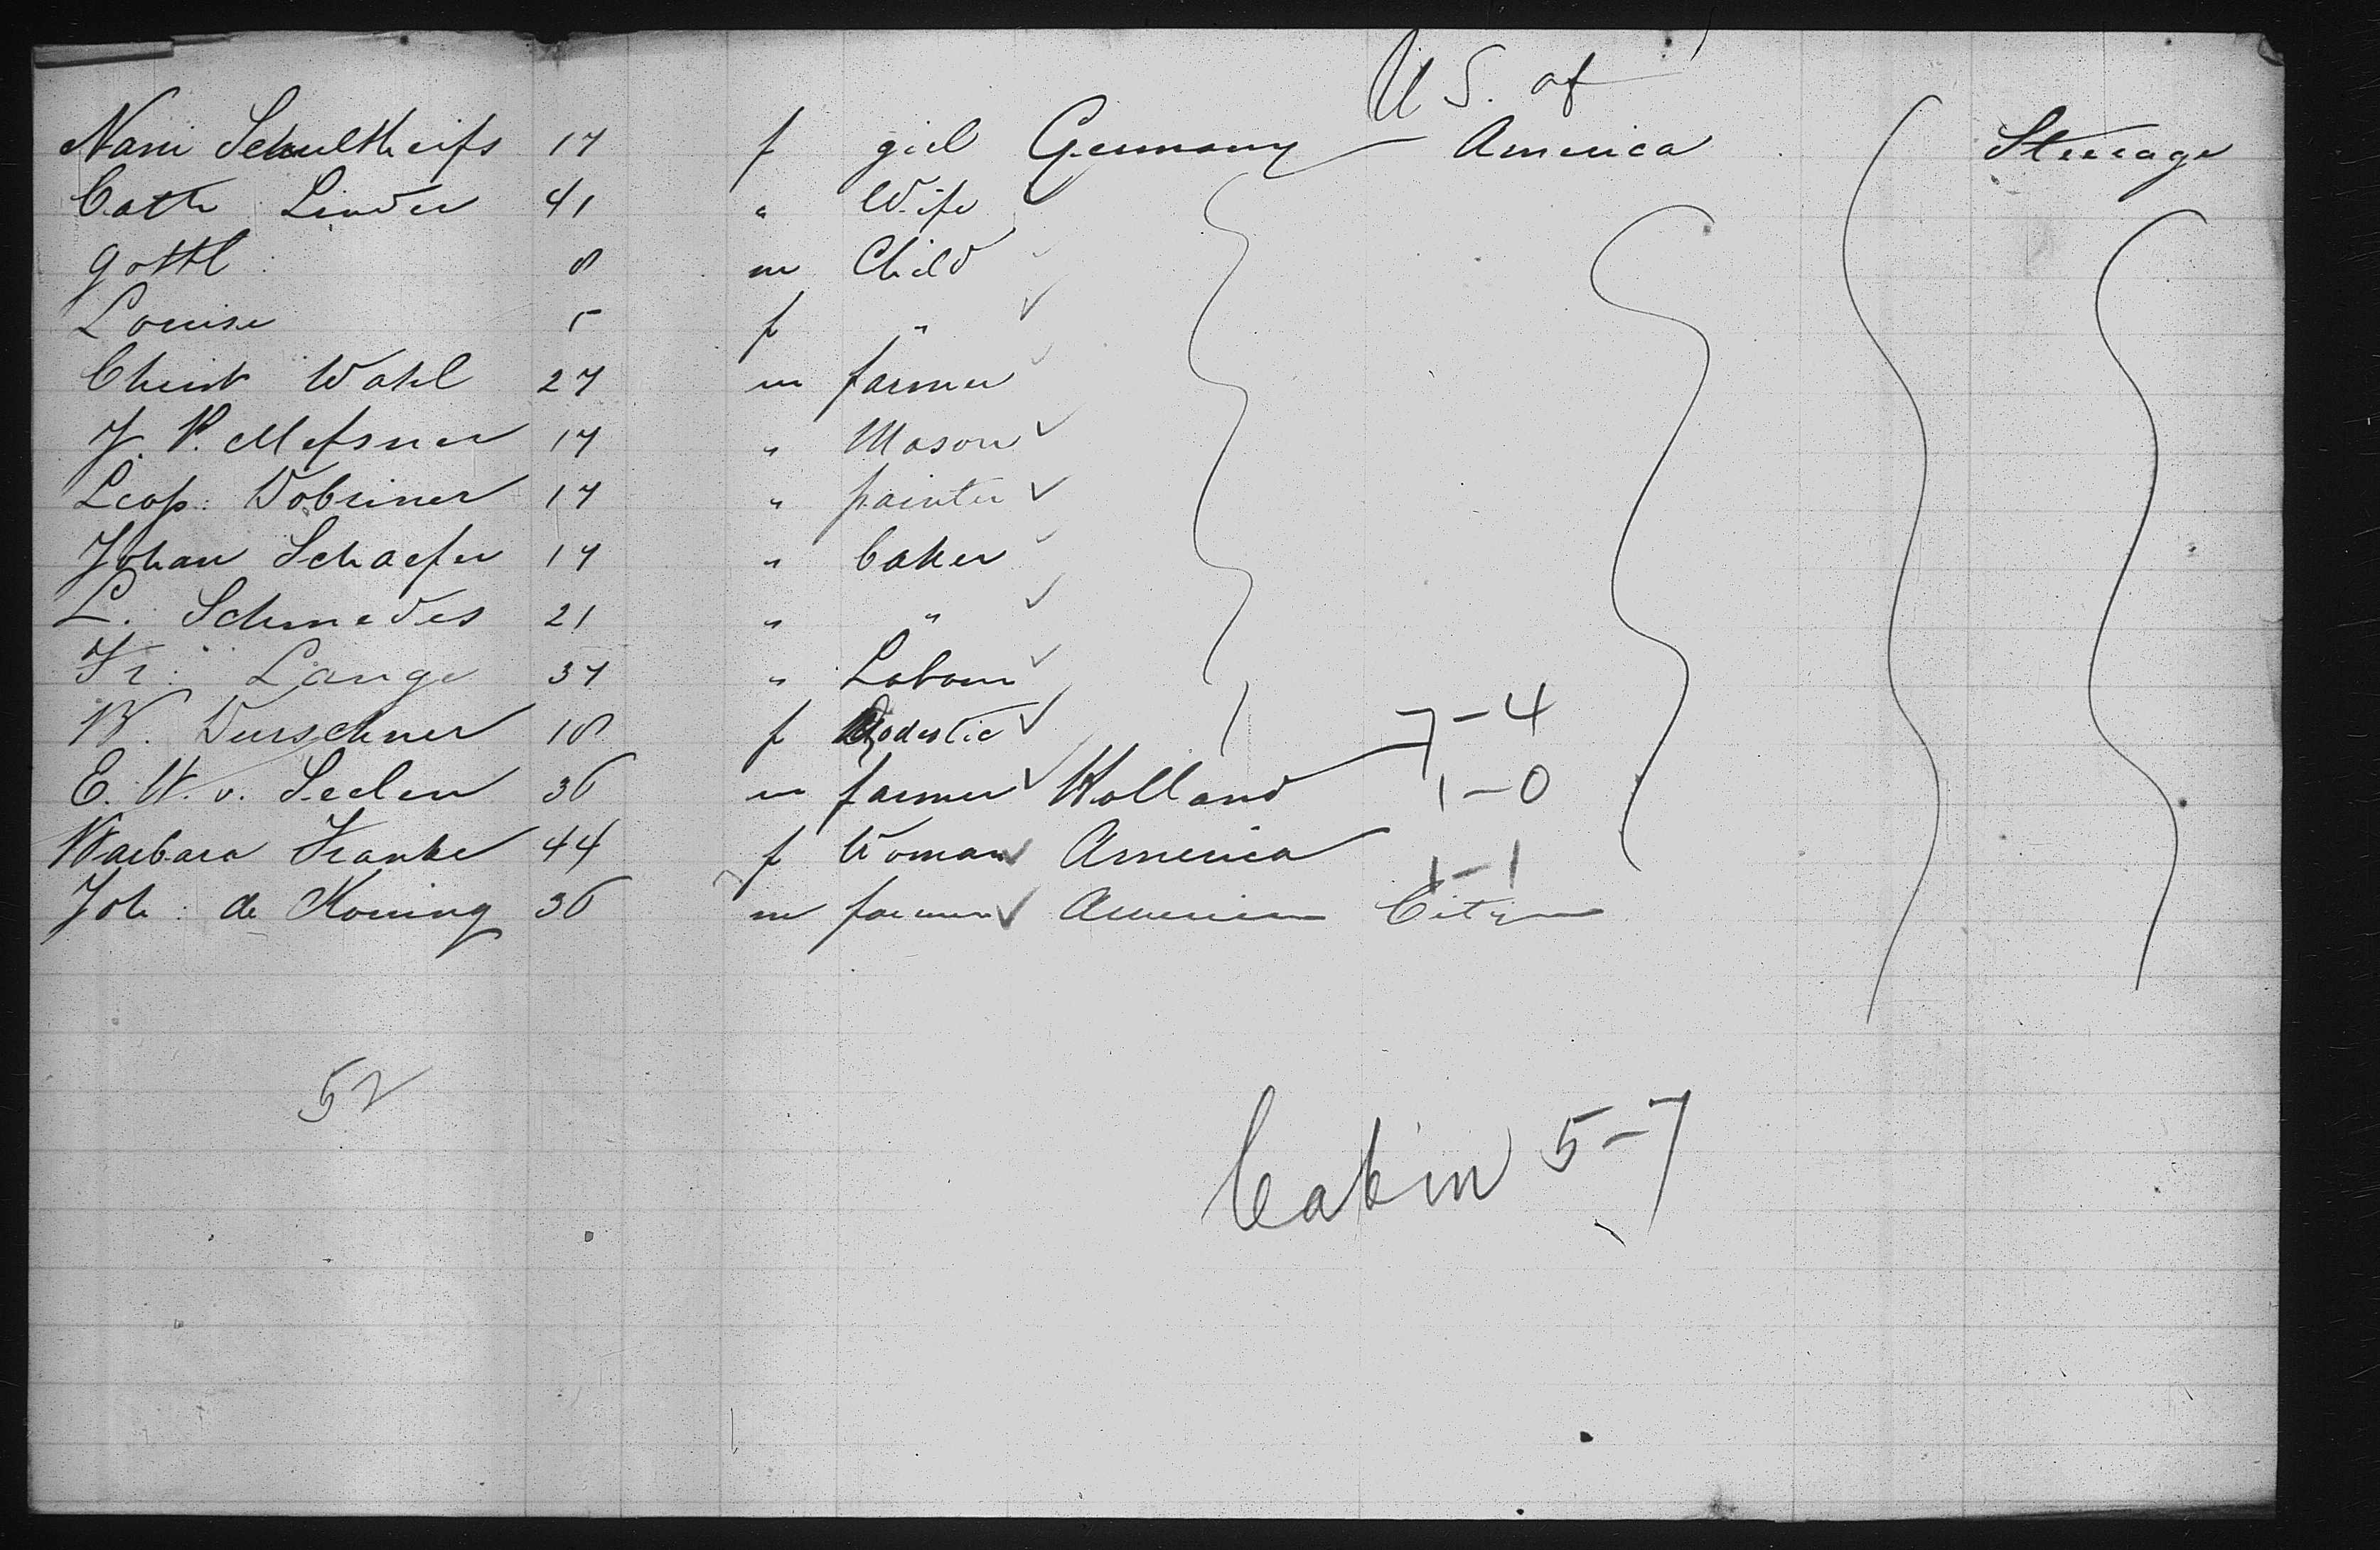 U S. of
Nani Schultheiſs 17 f girl Germany — America Steerage
Cath Linder 41 " Wife
Gottl : 8 m Child
Louise 5 f "
Christ Wahl 27 m farmer
J. P. Meſsner 17 " Mason
Leop: Dobriner 17 " painter
Johan Schaefer 17 " baker
L. Schmedes 21 " "
Fr: Lange 37 " Labour
W. Durschner 18 f
7-4
E. W. v. Seelen 36 m farmer Holland
1-0
Barbara Franke 44 f Woman America
1-1
Joh: de Koning 36 m farmer American Citizen
52
Cabin 5-7